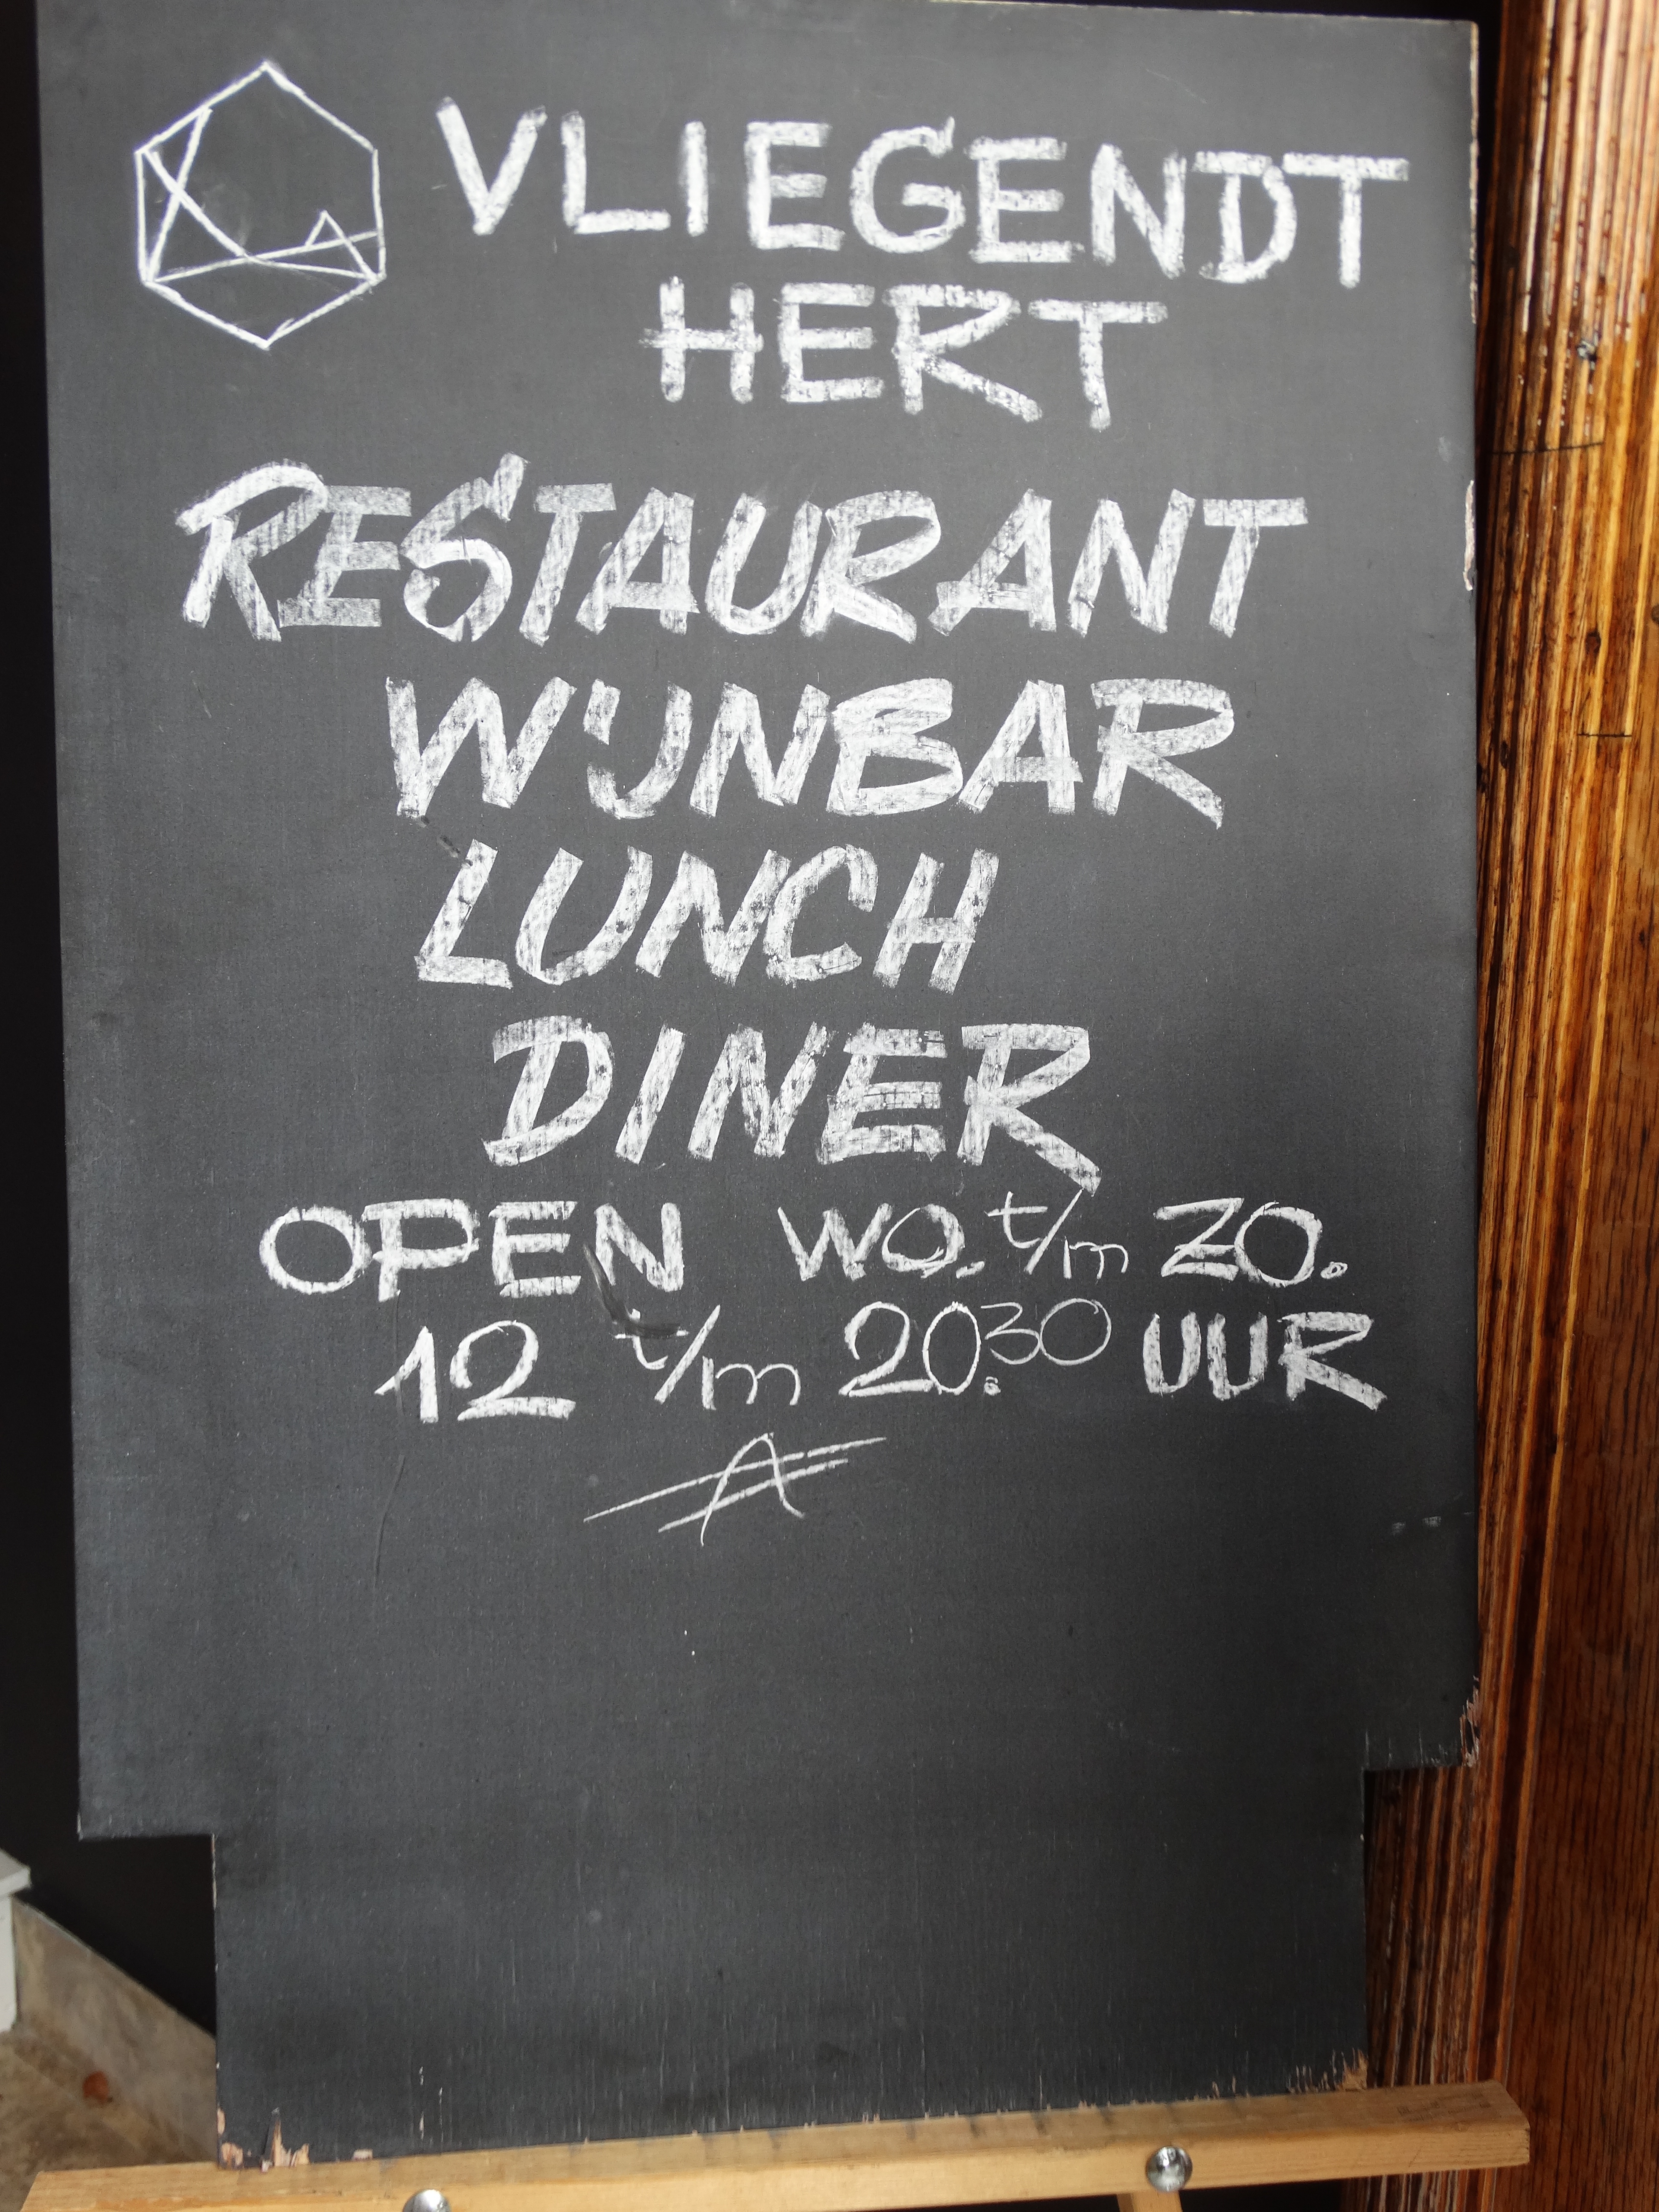 VLIEGENDT
HERT
RESTAURANT
WIJNBAR
LUNCH
DINER
OPEN WO. t/m ZO.
12 t/m 20.30 UUR